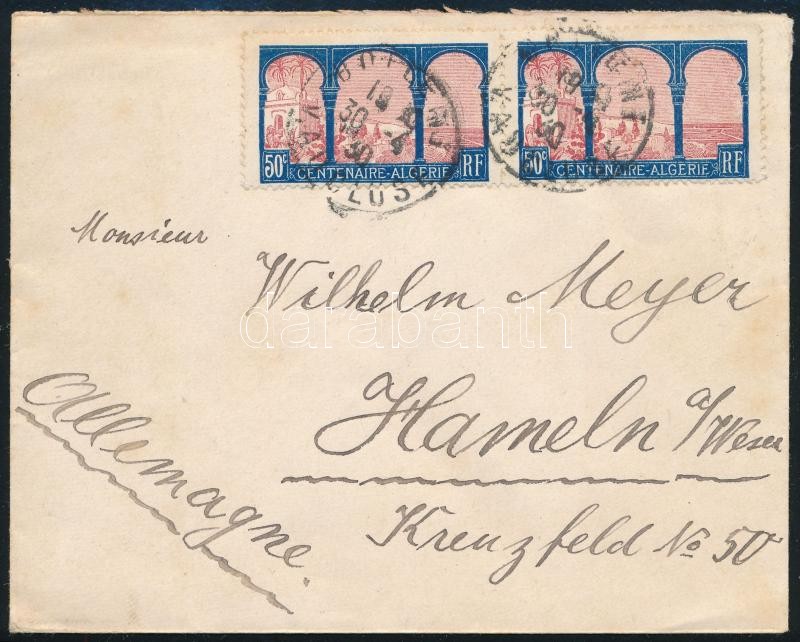 50c CENTENAIRE-ALGÉRIE RF
50c CENTENAIRE-ALGÉRIE RF
Monsieur
Wilhelm Meyer
darabanth
Hameln a/Weser
Allemagne.
Kreuzfeld No 50